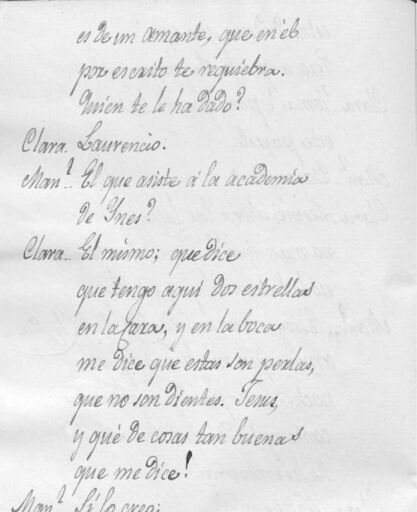 es de un amante, que en él
por escrito te requiebra.
Quién te le ha dado?
Clara. Laurencio.
Man.ˡ.. El que asiste á la academia
de Ynes?
Clara.. El mismo; que dice
que tengo aqui dos estrellas
en la cara, y en la boca
me dice que estas son perlas,
que no son dientes. Jesus,
y qué de cosas tan buenas
que me dice!
Man.ˡ Si lo creo;